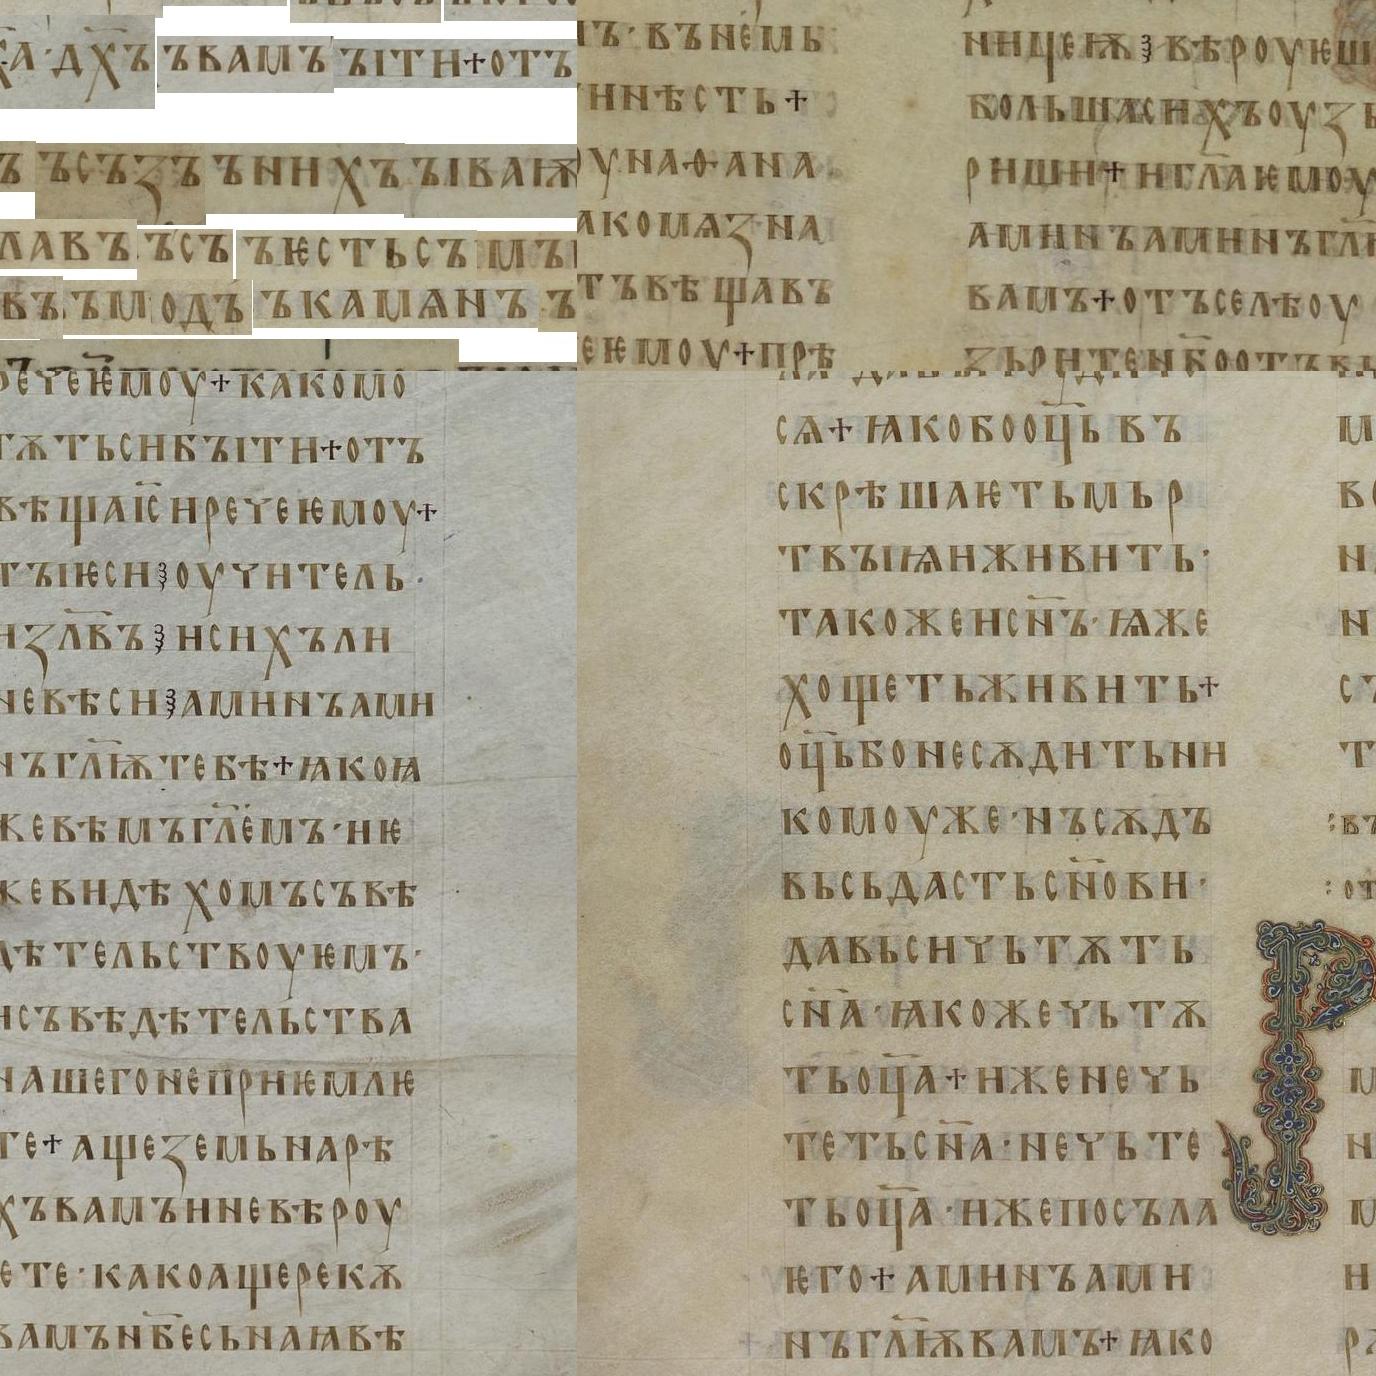 а·дх҃ъ ъвамъ ъіти+отъ
ъ ъсъзъ ъинхъ ъіваѭ
лавъ ъсъ ъѥстьсъ мъі
въ ъмодъ ъкамѧнъ ъ
ъ·вънемь
ннѣсть+
оунаѳана
акомѧзна
тъвѣщавъ
еѥмоу+прѣ
ницеѭ ⁖ вѣроуѥш
больша сихъоузь
риши+игл҃аѥмоу
аминъаминъгл҃ѭ
вамъ+отъселѣоу
зьритенб҃оотъв
речеѥмоу+какомо
гѫтьсибъіти+отъ
вѣщаіс҃иречеѥмоу+
тъіѥси⁖оучитель
изл҃въ⁖исихъли
невѣси⁖аминъами
нъгл҃ѭтебѣ+ꙗкоꙗ
жевѣмъгл҃емъ·иѥ
жевидѣхомъсъвѣ
дѣтельствоуѥмъ·
исъвѣдѣтельства
нашегонеприѥмлѥ
те+ащеземьнарѣ
хъвамъиневѣроу
ете·какоащерекѫ
вамънб҃есьнаꙗвѣ
сѧ+ꙗкобооц҃ьвъ
скрѣшаѥтьмьр
твъіѩиживить·
такожеисн҃ъ·ꙗже
хощетьживить+
оц҃ьбонесѫдитьни
комоуже·нъсѫдъ
вьсьдастьсн҃ови·
давьсичьтѫть
сн҃а·ꙗкожечьтѫ
тьоц҃а+ижене чь
тетьсн҃а·нечьте
тьоц҃а·ижепосъла
ѥго+аминъами
нъгл҃ѭвамъ+ꙗко